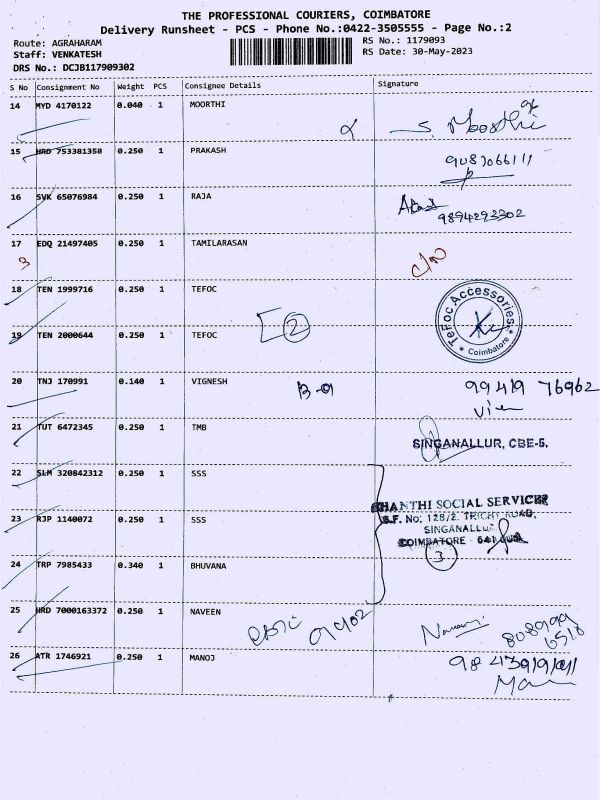 THE PROFESSIONAL COURIERS, COIMBATORE
Delivery Runsheet - PCS - Phone No.:0422-3505555 - Page No.:2
Route: AGRAHARAM
RS No.: 1179093
Staff: VENKATESH
RS Date: 30-May-2023
DRS No.: DCJB117909302
S No Consignment No Weight PCS Consignee Details Signature
14 MYD 4170122 0.040 1 MOORTHI S. Moorthi
15 HRD 753381358 0.250 1 PRAKASH
9087066111
16 SVK 65076984 0.250 1 RAJA
9894293302
17 EDQ 21497405 0.250 1 TAMILARASAN
3 C/N
18 TEN 1999716 0.250 1 TEFOC
TeFoc Accessories
* Coimbatore *
19 TEN 2000644 0.250 1 TEFOC
2
20 TNJ 170991 0.140 1 VIGNESH
99419 76962
21 TUT 6472345 0.250 1 TMB
SINGANALLUR, CBE-5.
22 SLM 320842312 0.250 1 SSS
SHANTHI SOCIAL SERVICES
23 RJP 1140072 0.250 1 SSS
S.F. No: 128/2. TRICHY ROAD,
SINGANALLUR
COIMBATORE
3
24 TRP 7985433 0.340 1 BHUVANA
25 HRD 7000163372 0.250 1 NAVEEN
808999
6518
26 ATR 1746921 0.250 1 MANOJ